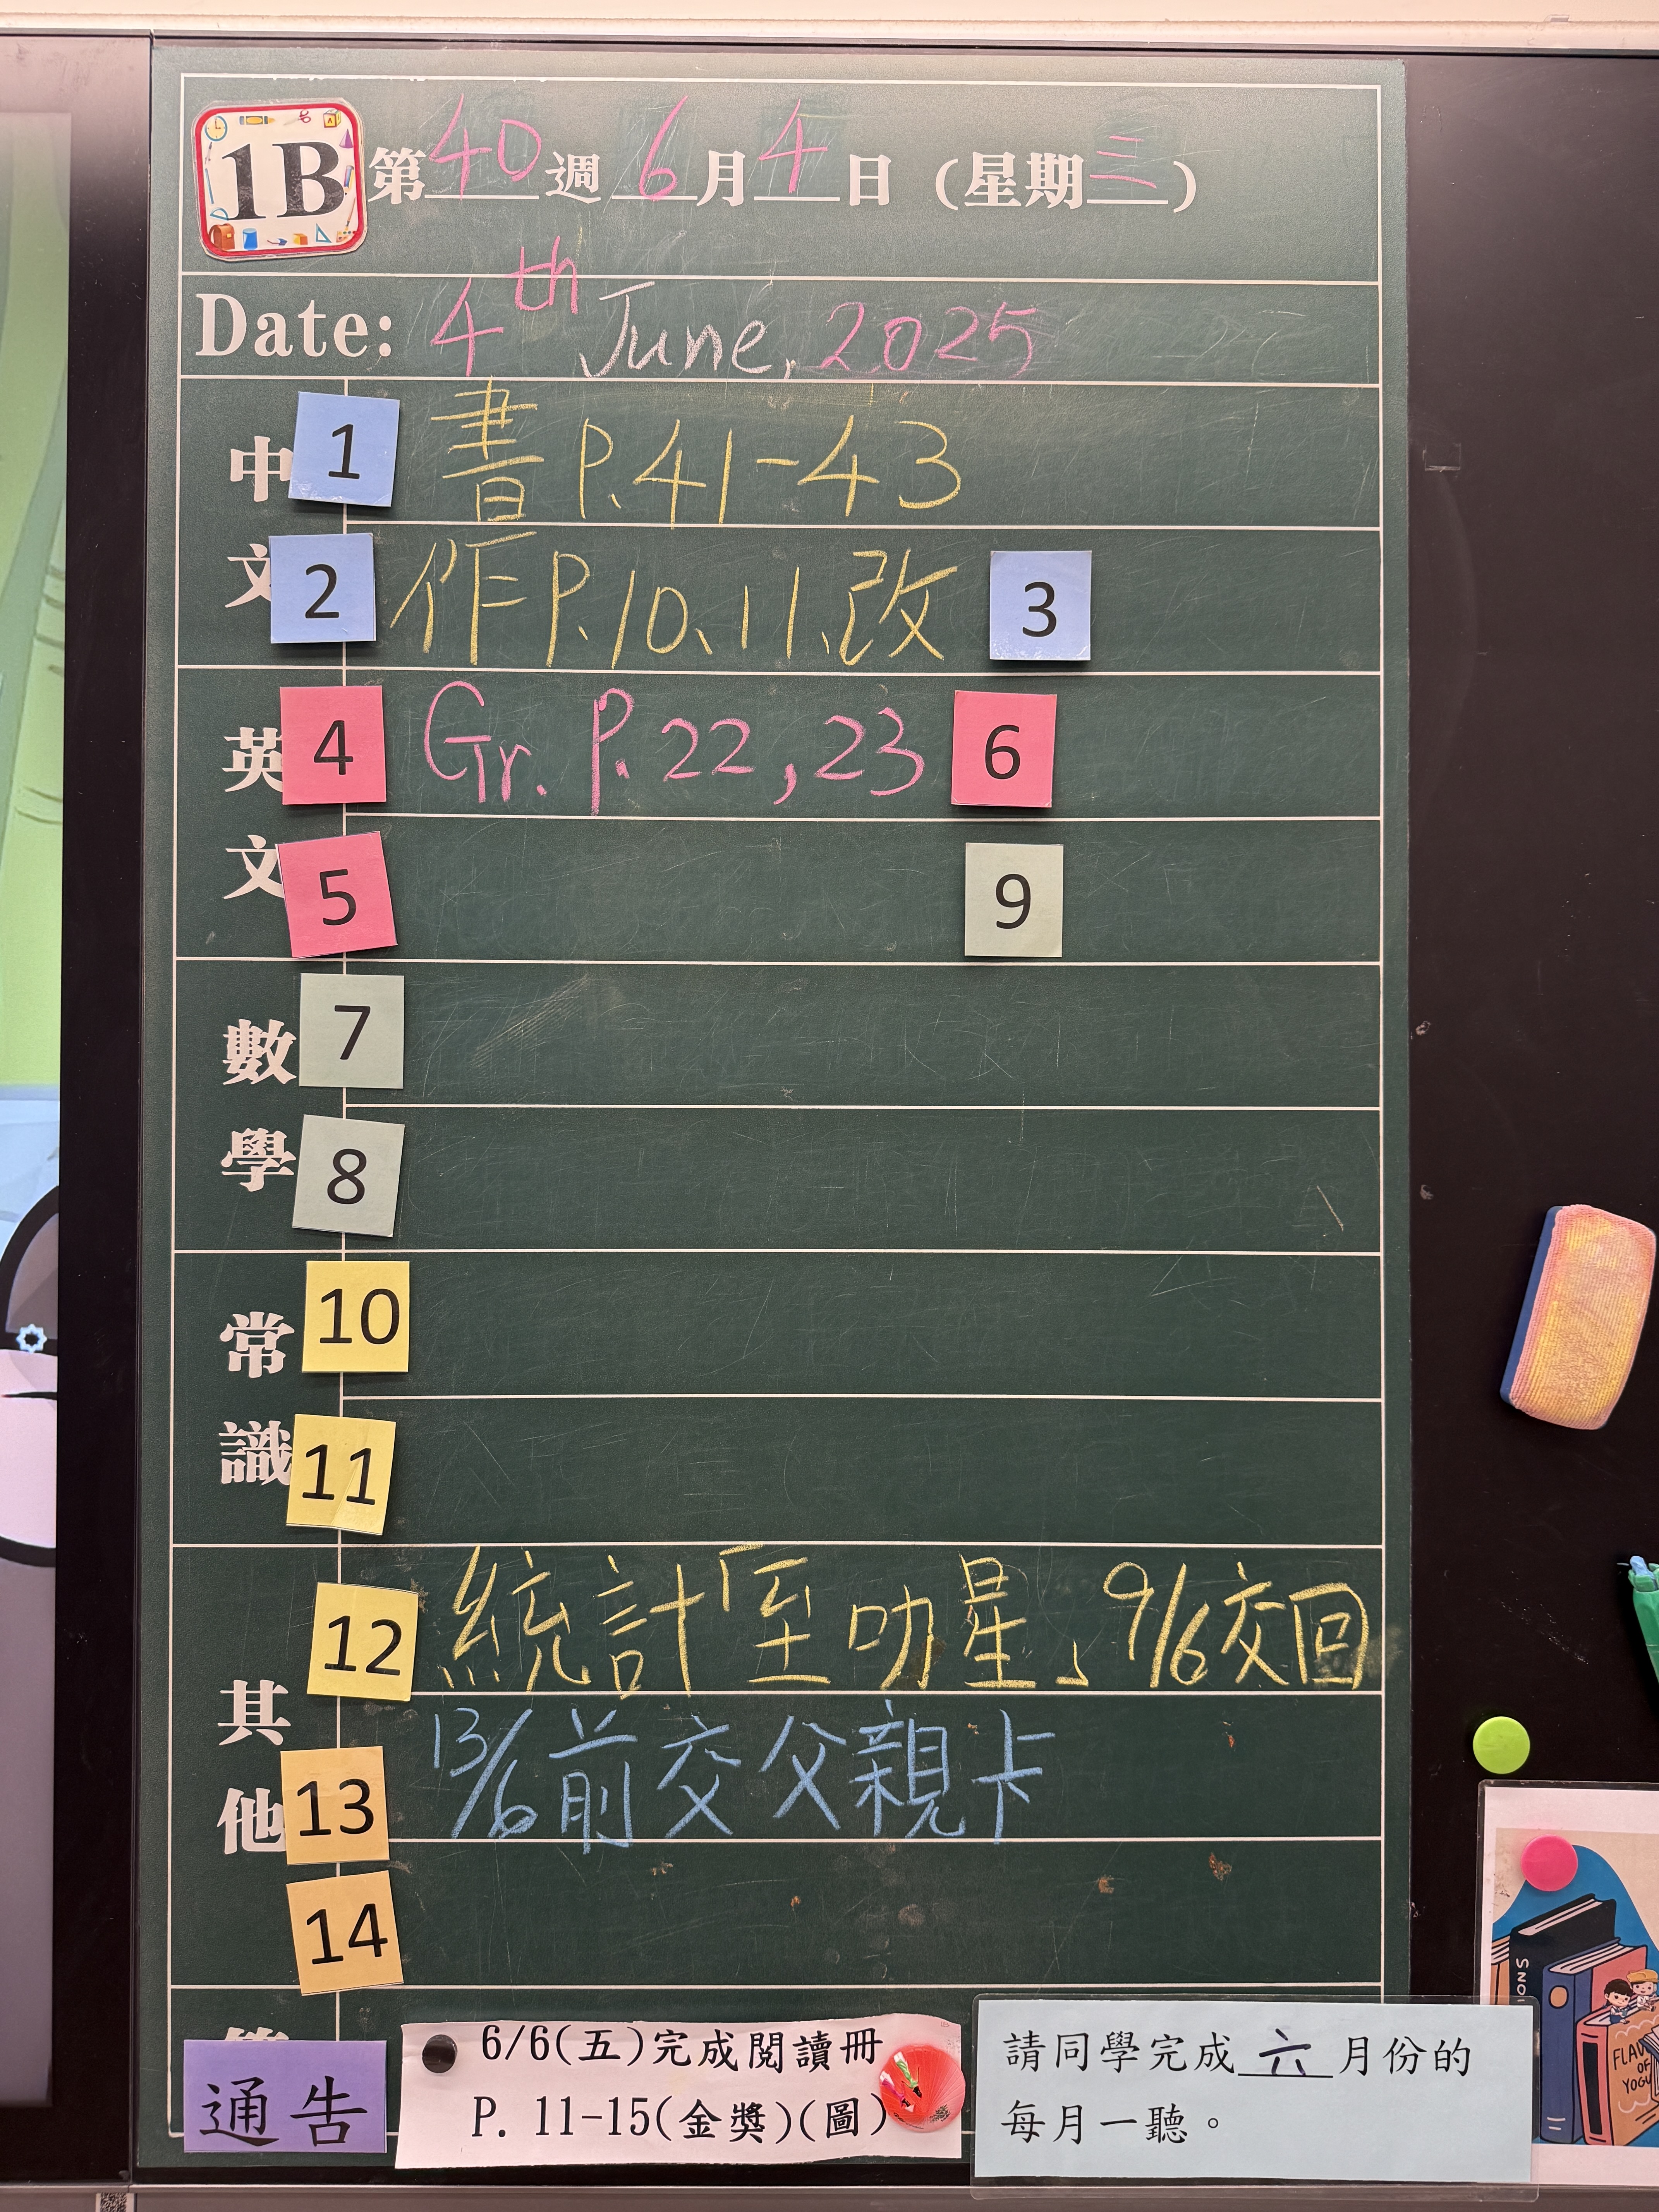 1B 第40週 6月4日 (星期三)
Date: 4th June, 2025
中文
1 書 P.41-43
2 作 P.10、11、改 3
英文
4 Gr. P.22, 23 6
5 9
數學
7
8
常識
10
11
其他
12 統計至叻星，9/6交回
13 13/6前交父親卡
14
通告
6/6(五)完成閱讀冊
P. 11-15(金獎)(圖)
請同學完成六月份的
每月一聽。
FLAV
OF
YOGU